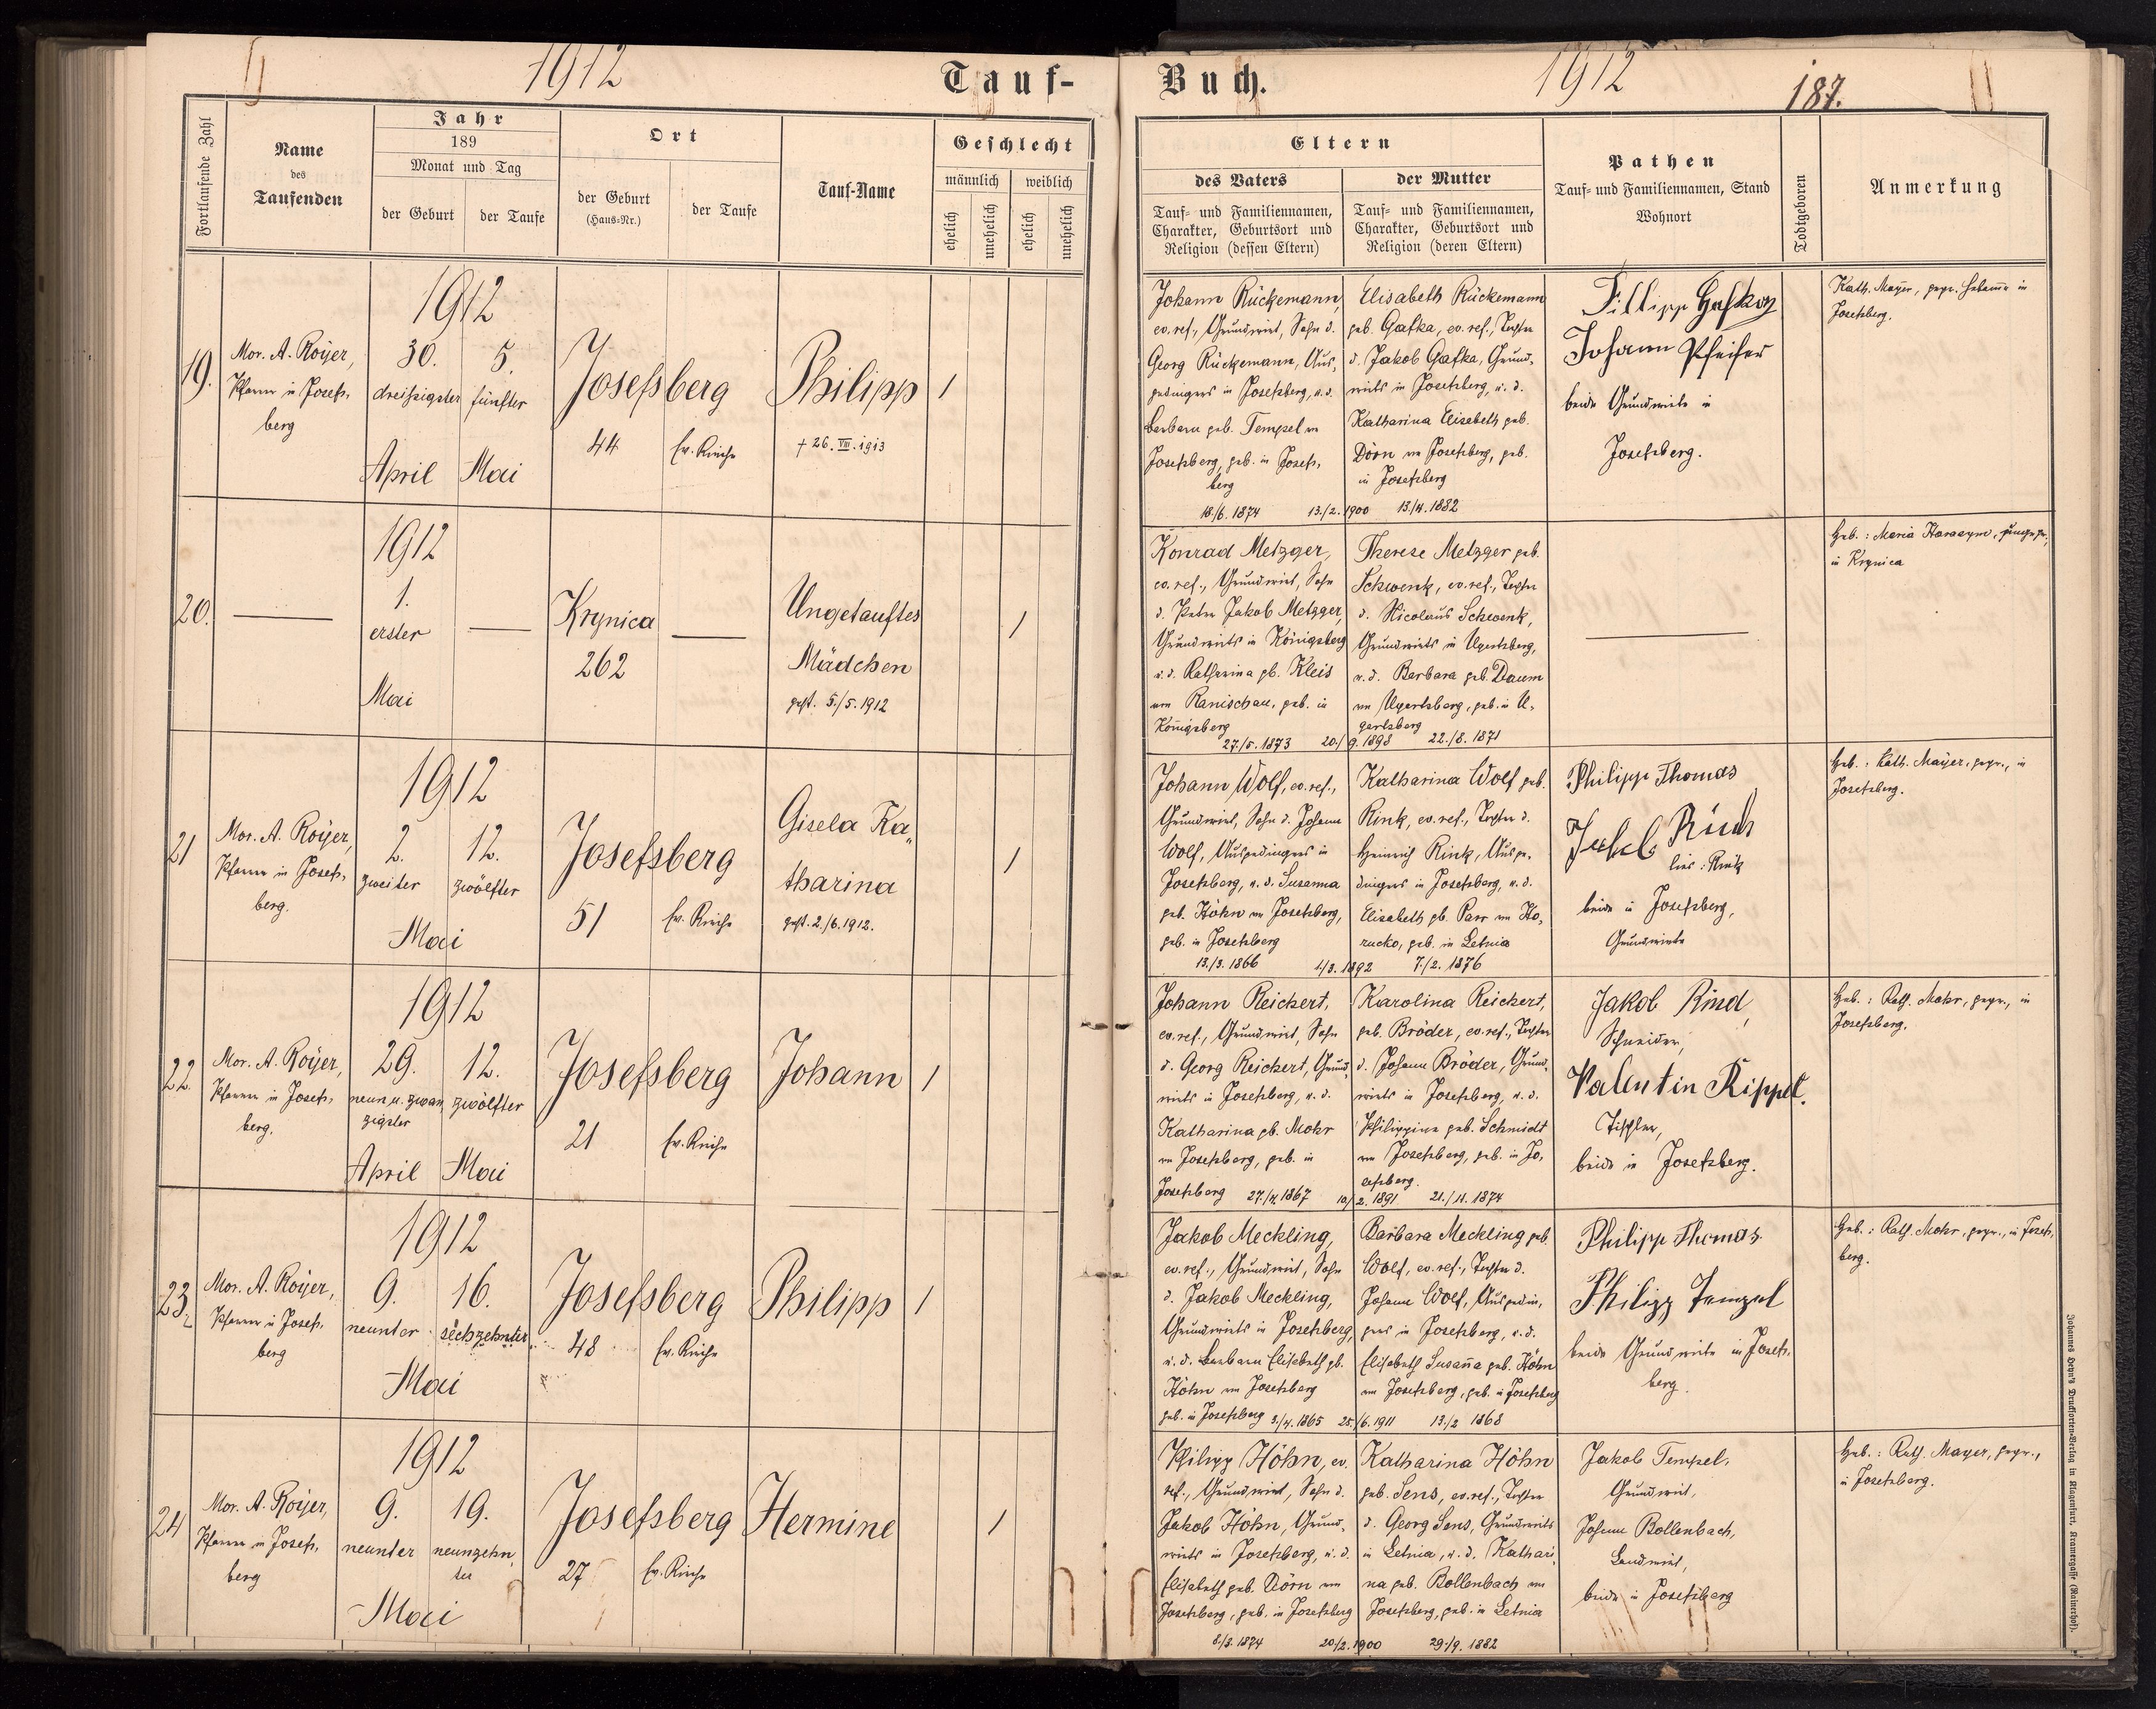 1912
Tauf-
Buch.
1912
187.
Fortlaufende Zahl
Name
des
Taufenden
Jahr
189
Monat und Tag
der Geburt
der Taufe
Ort
der Geburt
(Haus-Nr.)
der Taufe
Tauf-Name
Geschlecht
männlich
weiblich
ehelich
unehelich
ehelich
unehelich
Eltern
des Vaters
Tauf- und Familiennamen,
Charakter, Geburtsort und
Religion (dessen Eltern)
der Mutter
Tauf- und Familiennamen,
Charakter, Geburtsort und
Religion (deren Eltern)
Pathen
Tauf- und Familiennamen, Stand
Wohnort
Todtgeboren
Anmerkung
19.
Mor. A. Royer,
Pfarrer in Josefs-
berg
1912
30.
dreißigster
April
5.
fünfter
Mai
Josefsberg
44
Ev. Kirche
Philipp
† 26. VIII. 1913
1
Johann Rückemann,
ev. ref., Grundwirt, Sohn d.
Georg Rückemann, Aus-
gedingers in Josefsberg, u. d.
Barbara geb. Tempel von
Josefsberg, geb. in Josefs-
berg
18./6. 1874
13./2. 1900
Elisabeth Rückemann
geb. Gafka, ev. ref., Tochter
d. Jakob Gafka, Grund-
wirts in Josefsberg, u. d.
Katharina Elisabeth geb.
Dörn von Josefsberg, geb.
in Josefsberg
13./4. 1882
Johann Pfeifer
beide Grundwirte in
Josefsberg.
Kath. Mayer, gepr. Hebamme in
Josefsberg.
20.
1912
1.
erster
Mai
Krynica
262
Ungetauftes
Mädchen
gest. 5./5. 1912
1
Konrad Metzger,
ev. ref., Grundwirt, Sohn
d. Peter Jakob Metzger,
Grundwirts in Königsberg
u. d. Katharina gb. Kleis
von Ranischau, geb. in
Königsberg
27./5. 1873
20./9. 1898
Therese Metzger geb.
Schwenk, ev. ref., Tochter
d. Nicolaus Schwenk,
Grundwirts in Ugertsberg,
u. d. Barbara geb. Daum
von Ugertsberg, geb. in U-
gertsberg
22./8. 1871
Heb.: Maria Harasym, ungepr.,
in Krynica
21
Mor. A. Royer,
Pfarrer in Josefs-
berg.
1912
2.
zweiter
12.
zwölfter
Mai
Josefsberg
51
Ev. Kirche
Gisela Ka-
tharina
gest. 2./6. 1912.
1
Johann Wolf, ev. ref.,
Grundwirt, Sohn d. Johann
Wolf, Ausgedingers in
Josefsberg, u. d. Susanna
geb. Höhn von Josefsberg,
geb. in Josefsberg
13./3. 1866
1/3. 1892
Katharina Wolf geb.
Rink, ev. ref., Tochter d.
Heinrich Rink, Ausge-
dingers in Josefsberg, u. d.
Elisabeth gb. Parr von Ho-
rucko, geb. in Letnia
7./2. 1876
Philipp Thomas
lies: Rink
beide in Josefsberg,
Grundwirte
Heb.: Kath. Mayer, gepr., in
Josefsberg.
22.
Mor. A. Royer,
Pfarrer in Josefs-
berg.
1912
29.
neun u. zwan-
zigster
April
12.
zwölfter
Mai
Josefsberg
21
Ev. Kirche
Johann
1
Johann Reichert,
ev. ref., Grundwirt, Sohn
d. Georg Reichert, Grund-
wirts in Josefsberg, u. d.
Katharina gb. Mohr
von Josefsberg, geb. in
Josefsberg 27./4. 1867
10./2. 1891
Karolina Reichert,
geb. Bröder, ev. ref., Tochter
d. Johann Bröder, Grund-
wirts in Josefsberg, u. d.
Philippine geb. Schmidt
von Josefsberg, geb. in Jo-
sefsberg.
21./11. 1874
Jakob Rind,
Schneider,
Valentin Rippel.
Tischler,
beide in Josefsberg.
Heb.: Kath. Mohr, gepr., in
Josefsberg.
23.
Mor. A. Royer,
Pfarrer in Josefs-
berg
1912
9.
neunter
16.
sechzehnter
Mai
Josefsberg
48
Ev. Kirche
Philipp
1
Jakob Meckling,
ev. ref., Grundwirt, Sohn
d. Jakob Meckling,
Grundwirts in Josefsberg,
u. d. Barbara Elisabeth gb.
Höhn von Josefsberg
geb. in Josefsberg 3./4. 1865
25./6. 1911
Barbara Meckling geb.
Wolf, ev. ref., Tochter d.
Johann Wolf, Ausgedin-
gers in Josefsberg, u. d.
Elisabeth Susanna geb. Höhn
von Josefsberg, geb. in Josefsberg
13./2 1868
Philipp Thomas
Philipp Tempel
beide Grundwirte in Josefs-
berg.
Heb.: Kath. Mohr, gepr., in Josefs-
berg.
24
Mor. A. Royer,
Pfarrer in Josefs-
berg
1912
9.
neunter
19.
neunzehn-
ter
Mai
Josefsberg
27
Ev. Kirche
Hermine
1
Philipp Höhn, ev.
ref., Grundwirt, Sohn d.
Jakob Höhn, Grund-
wirts in Josefsberg, u. d.
Elisabeth geb. Dörn von
Josefsberg, geb. in Josefsberg
8./3. 1874
20/2. 1900
Katharina Höhn
geb. Sens, ev. ref., Tochter
d. Georg Sens, Grundwirts
in Letnia, u. d. Kathari-
na geb. Bollenbach von
Josefsberg, geb. in Letnia
29./9. 1882
Jakob Tempel,
Grundwirt,
Johann Bollenbach,
Landwirt,
beide in Josefsberg
Heb.: Kath. Mayer, gepr.,
in Josefsberg.